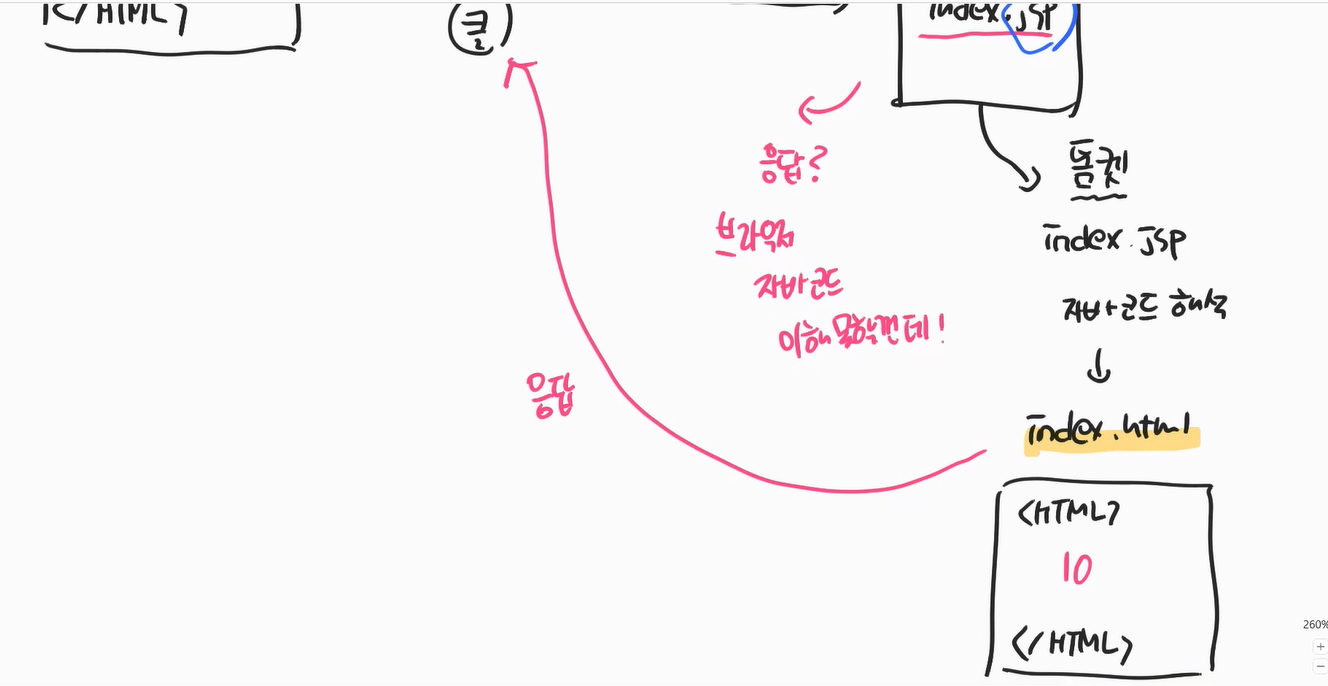 </HTML>
클
index.jsp
응답?
브라우저
자바코드
이해 못할껀데!
응답
톰켓
index.jsp
자바코드 해석
index.html
<HTML>
10
</HTML>
260%